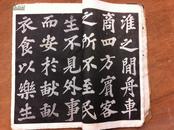 淮之間舟車
商四方賓客
之所不至民
生不見外事
而安於畎畝
衣食以樂生